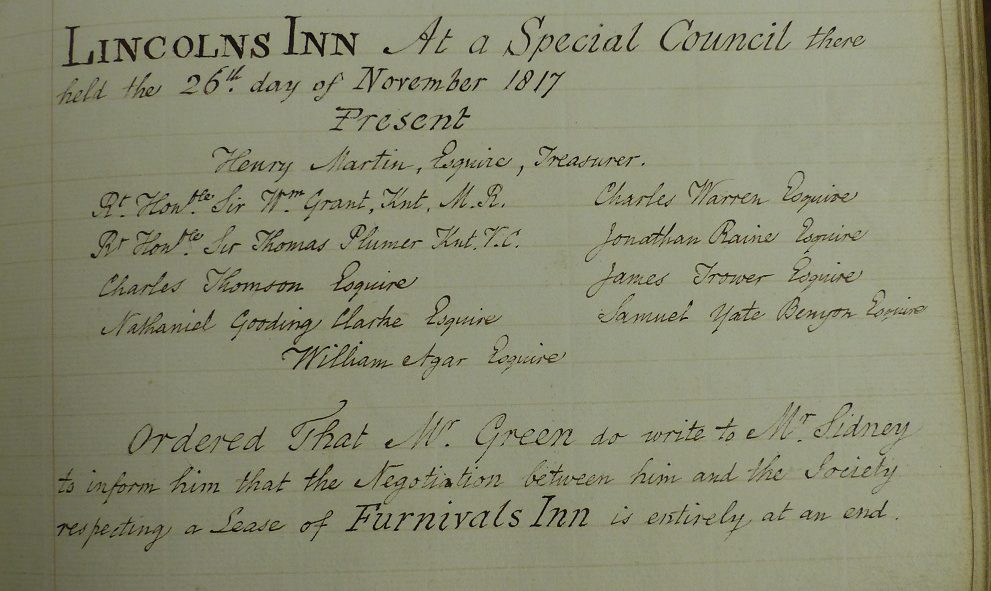 LINCOLNS INN At a Special Council there
held the 26th. day of November 1817
Present
Henry Martin, Esquire, Treasurer.
Rt. Honble. Sir Wm. Grant, Knt, M.R.
Rt Honble. Sir Thomas Plumer Knt. V.C.
Charles Thomson Esquire
Nathaniel Gooding Clarke Esquire
Charles Warren Esquire
Jonathan Raine Esquire
James Trower Esquire
Samuel Yate Benyon Esquire
William Agar Esquire
Ordered That Mr. Green do write to Mr. Sidney
to inform him that the Negotiation between him and the Society
respecting a Lease of Furnivals Inn is entirely at an end.